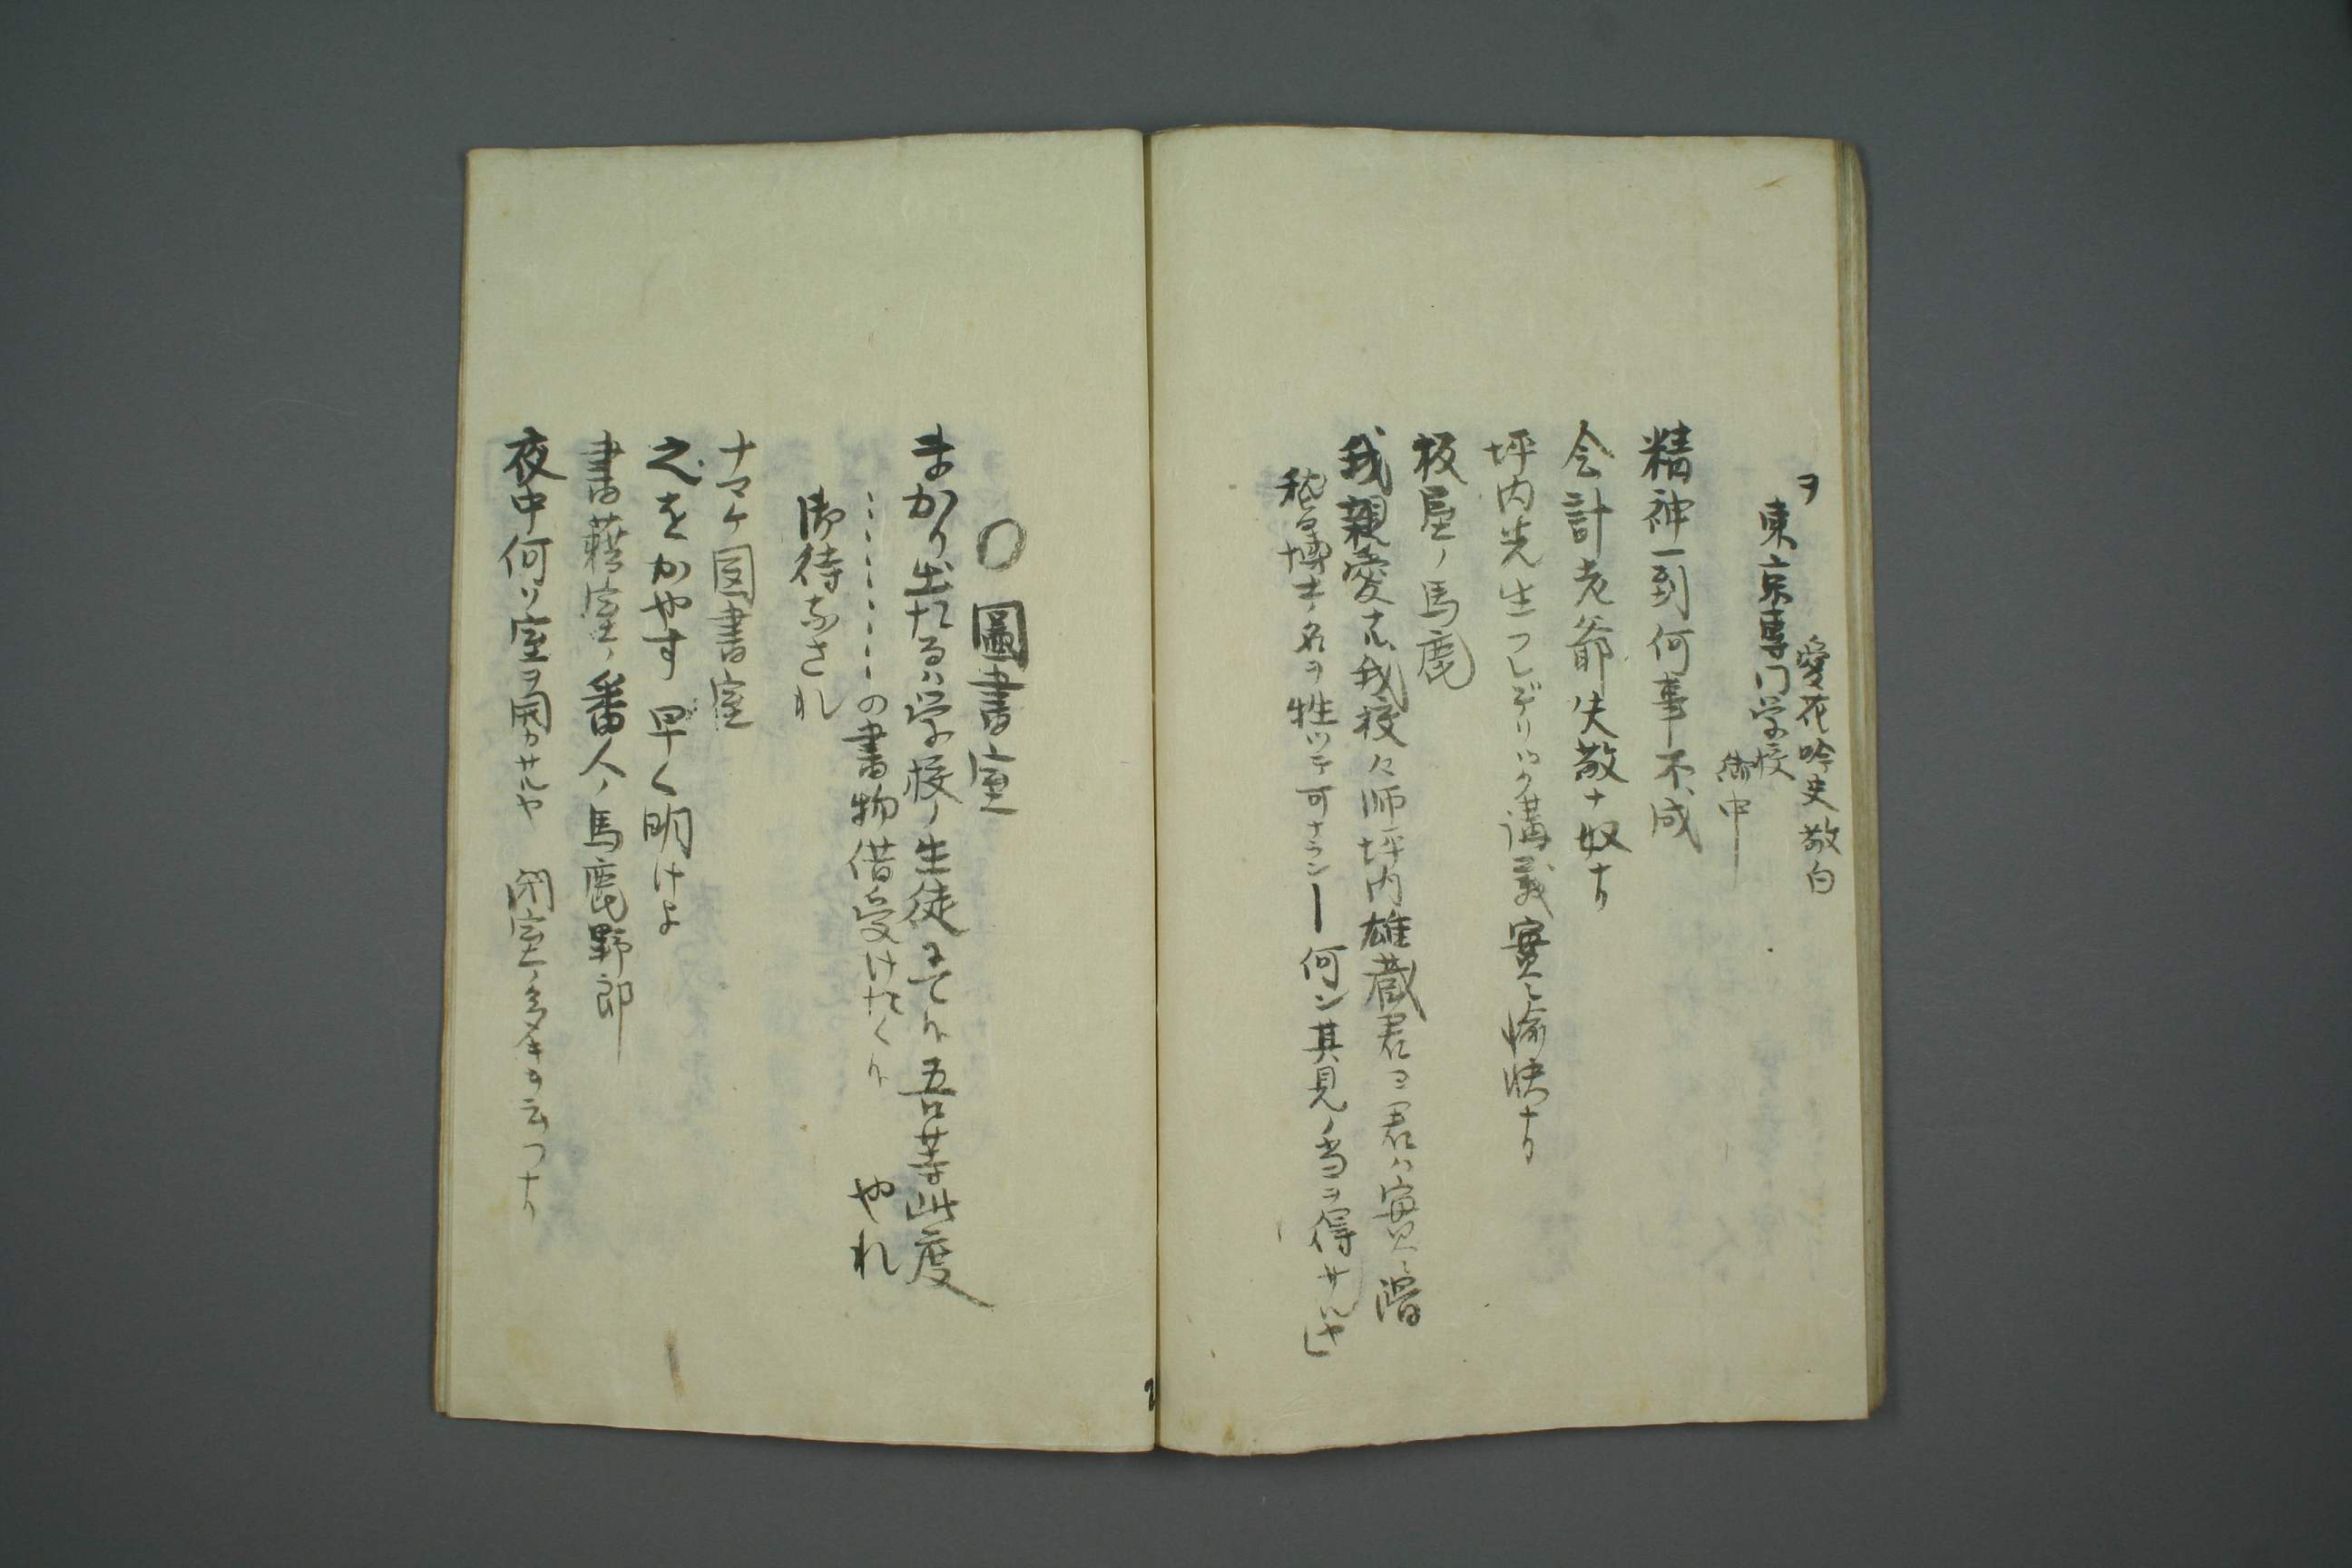 ヲ
愛花吟史敬白
東京専門学校
御中
精神一到何事不成
会計老爺失敬ナ奴ナリ
坪内先生フレデリック講義實ニ愉快ナリ
板屋ノ馬鹿
我親愛ナル我校ノ師坪内雄蔵君ヨ君ハ實ニ滑
稽博士ノ名ヲ 可ナランー何ン其見ノ当ヲ得サルヤ
〇圖書室
まかり出たるハ学校ノ生徒にて候吾等此度
、、、、、、、の書物借受けたく候 やれ
御待なされ
ナマケ図書室
之をかやす早く明けよ
書藉室ノ番人ノ馬鹿野郎
夜中何ソ室ヲ開カサルヤ 閉室ノ多キヲ云フナリ